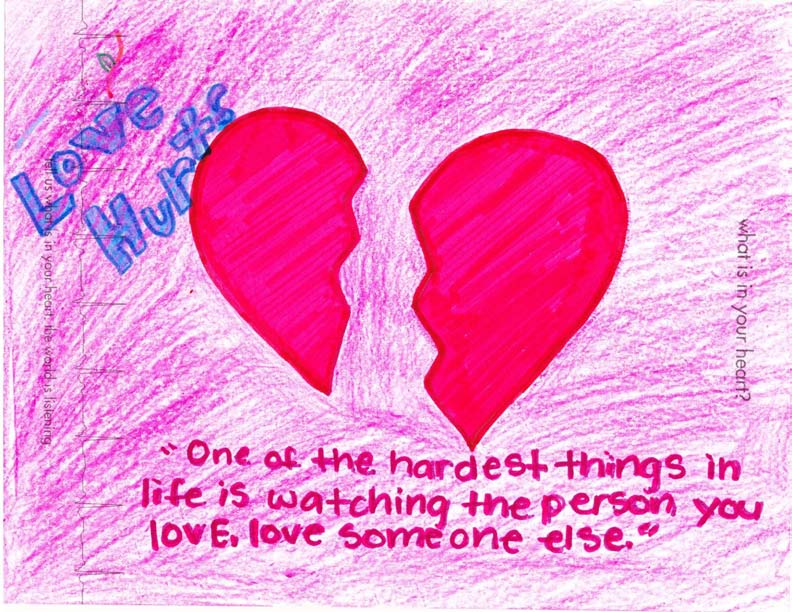 Love
Hurts
tell us what is in your heart; the world is listening
what is in your heart?
"One of the hardest things in
life is watching the person you
lovE, love someone else."